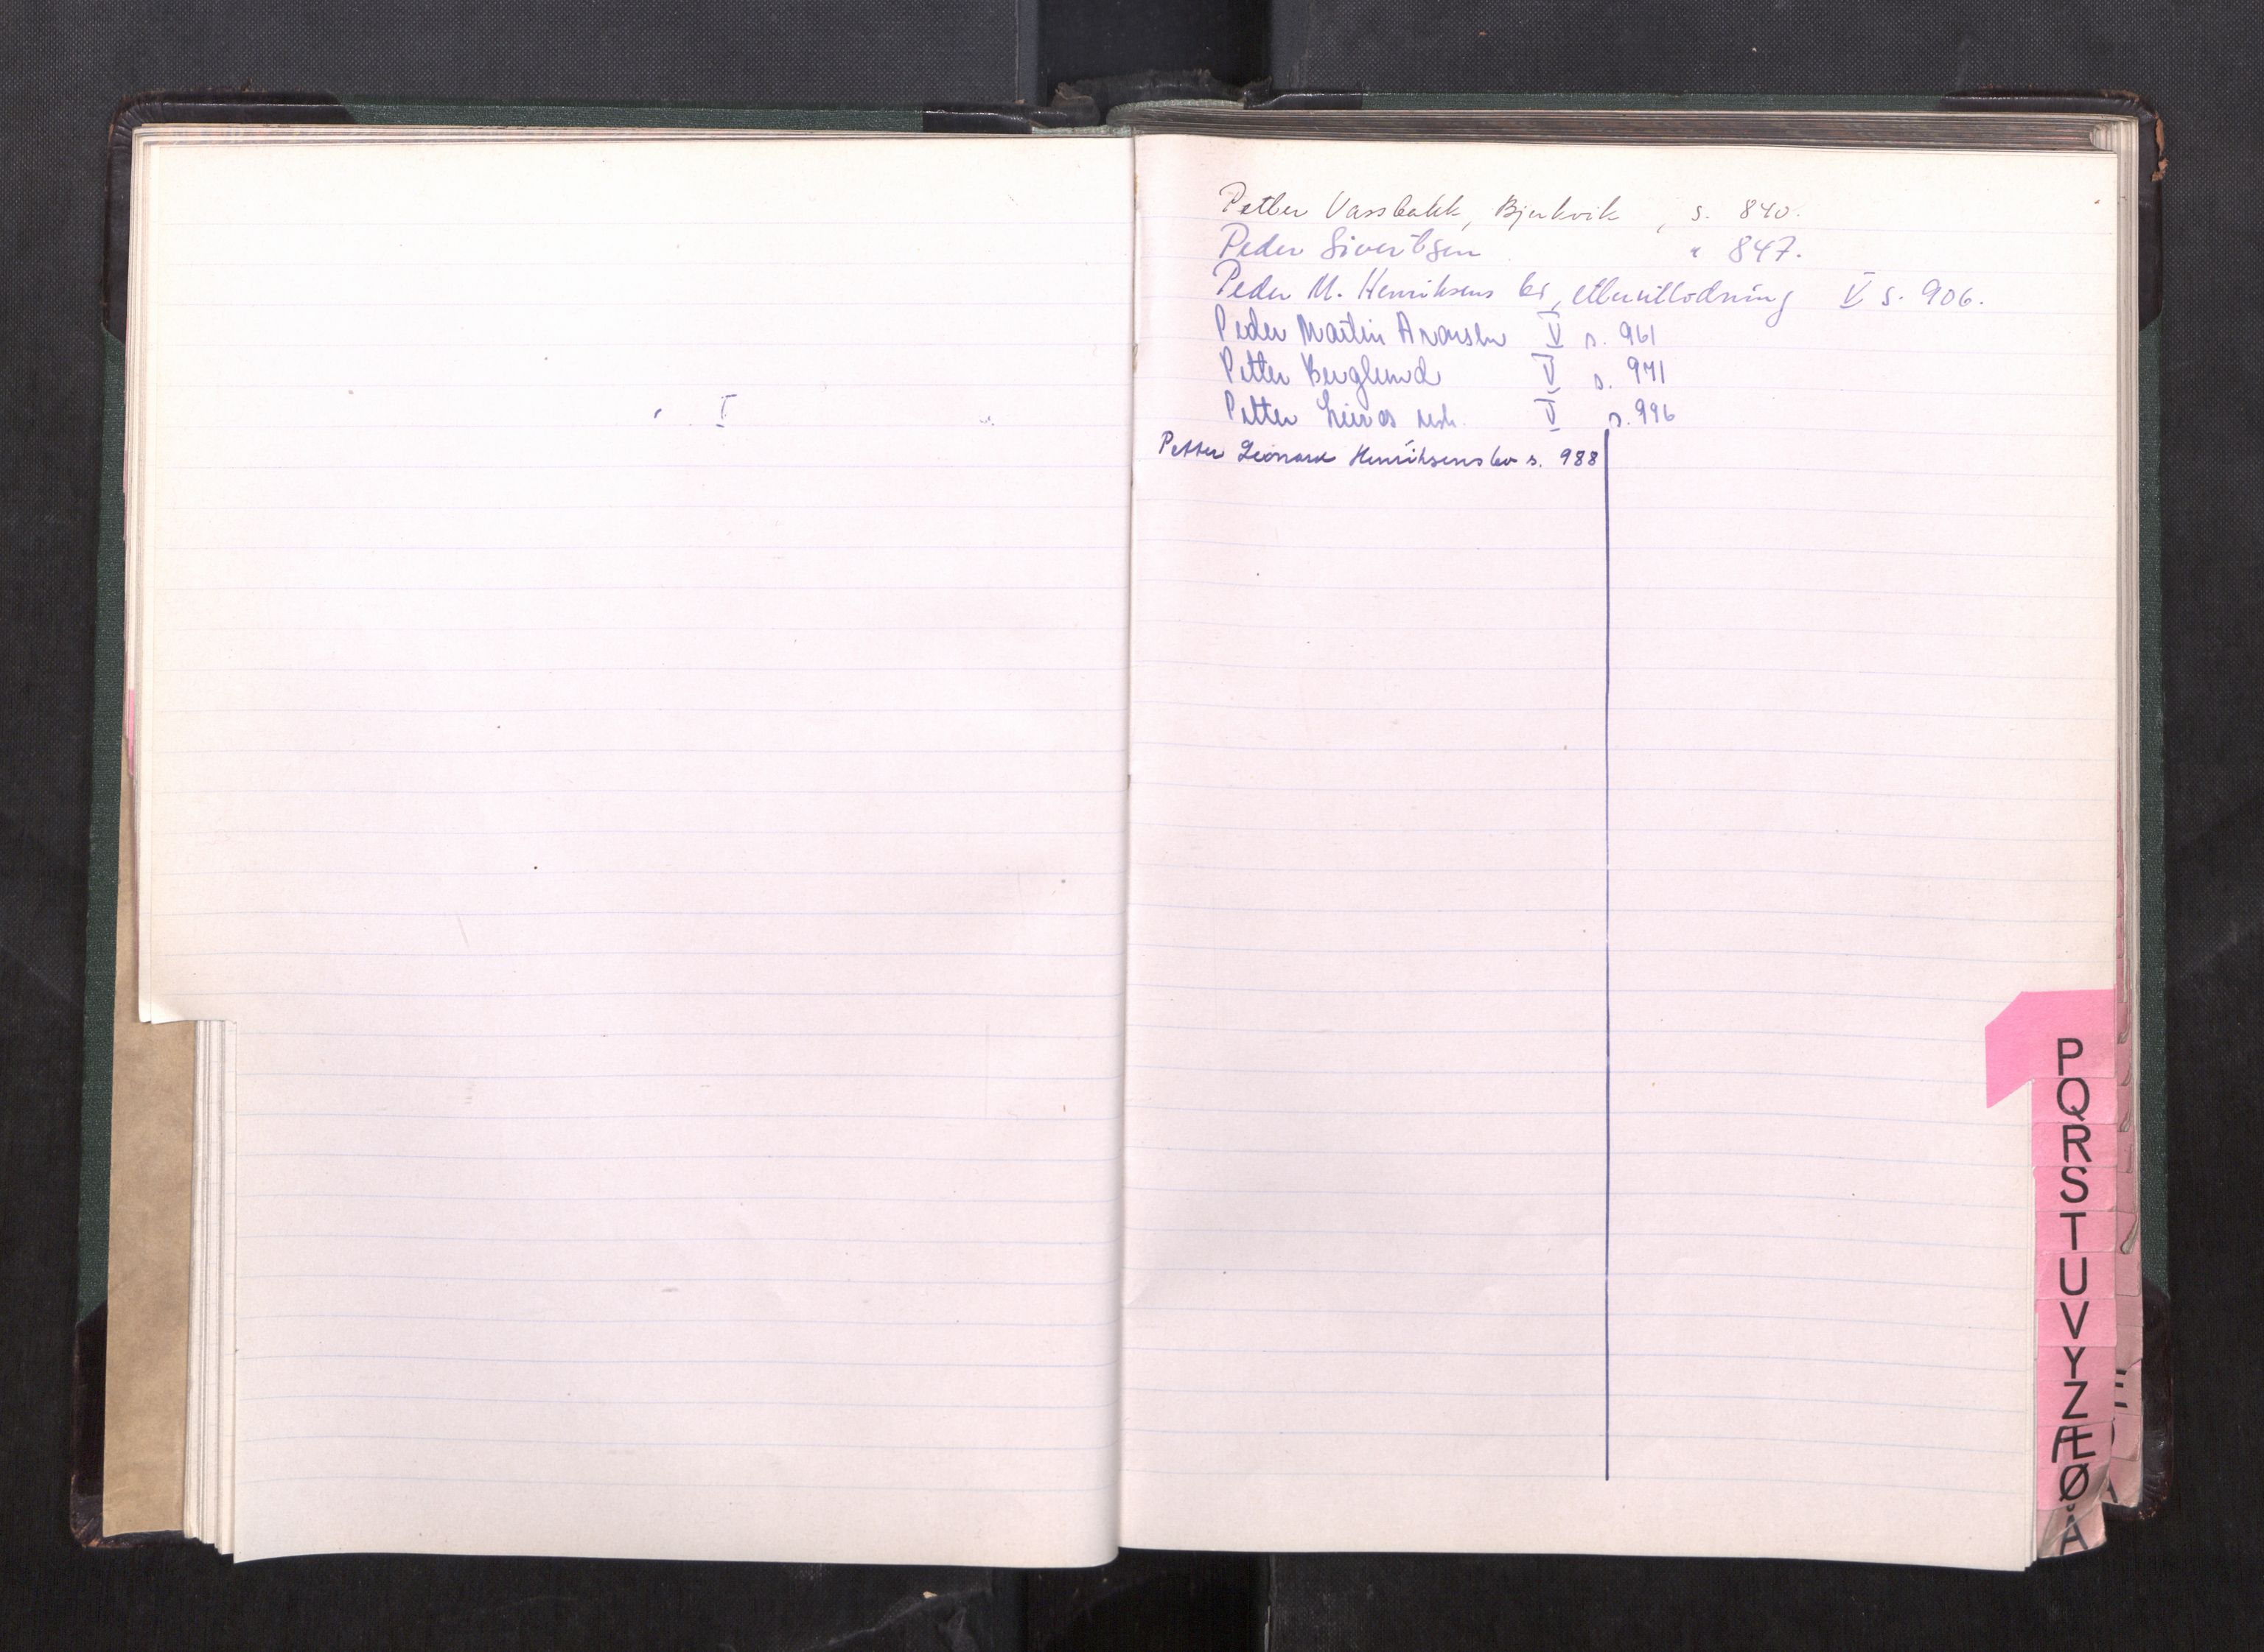 Petter Vassbakk, Bjerkvik, s. 840.
Peder Sivertsen " 847.
Peder M. Henriksens bo, etterutlodning V s. 906.
Peder Martin Aronsen V s. 961
Petter Berglund V s. 971
Petter V s. 996
Petter Leonard Henriksens bo s. 988
I
P
Q
R
S
T
U
V
Y
Z
Æ
Ø
Å